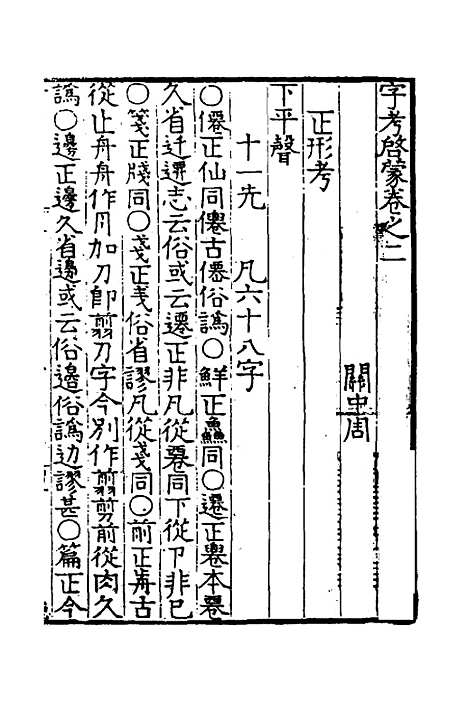 字考啓蒙卷之二
關中周
正形考
下平聲
十一先　凡六十八字
○僊正仙同僊古僊俗譌○鮮正鱻同○遷正䙴本䙴
久省迁遷志云俗或云遷正非凡從䙴同下從卩非㔾
○箋正牋同○戔正㦮俗省謬凡從戔同○前正歬古
從止舟舟作月加刀卽翦刀字今别作翦剪前從肉久
譌○邊正邊久省邉或云俗邊俗譌边謬甚○篇正今